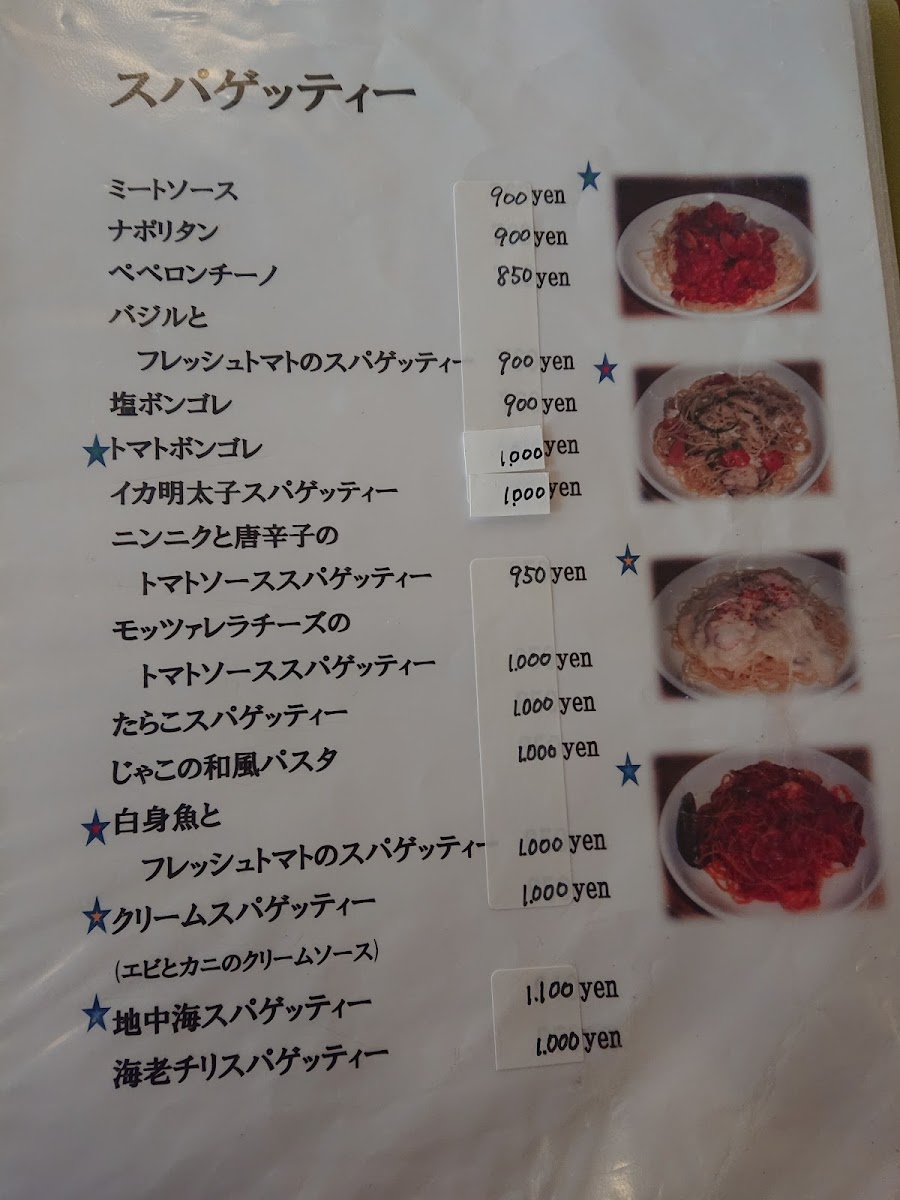 スパゲッティー
ミートソース 900 yen
ナポリタン 900 yen
ペペロンチーノ 850 yen
バジルと
フレッシュトマトのスパゲッティー 900 yen
塩ボンゴレ 900 yen
★トマトボンゴレ 1.000 yen
イカ明太子スパゲッティー 1.000 yen
ニンニクと唐辛子の
トマトソーススパゲッティー 950 yen
モッツァレラチーズの
トマトソーススパゲッティー 1.000 yen
たらこスパゲッティー 1.000 yen
じゃこの和風パスタ 1.000 yen
★白身魚と
フレッシュトマトのスパゲッティー 1.000 yen
★クリームスパゲッティー 1.000 yen
(エビとカニのクリームソース)
★地中海スパゲッティー 1.100 yen
海老チリスパゲッティー 1.000 yen